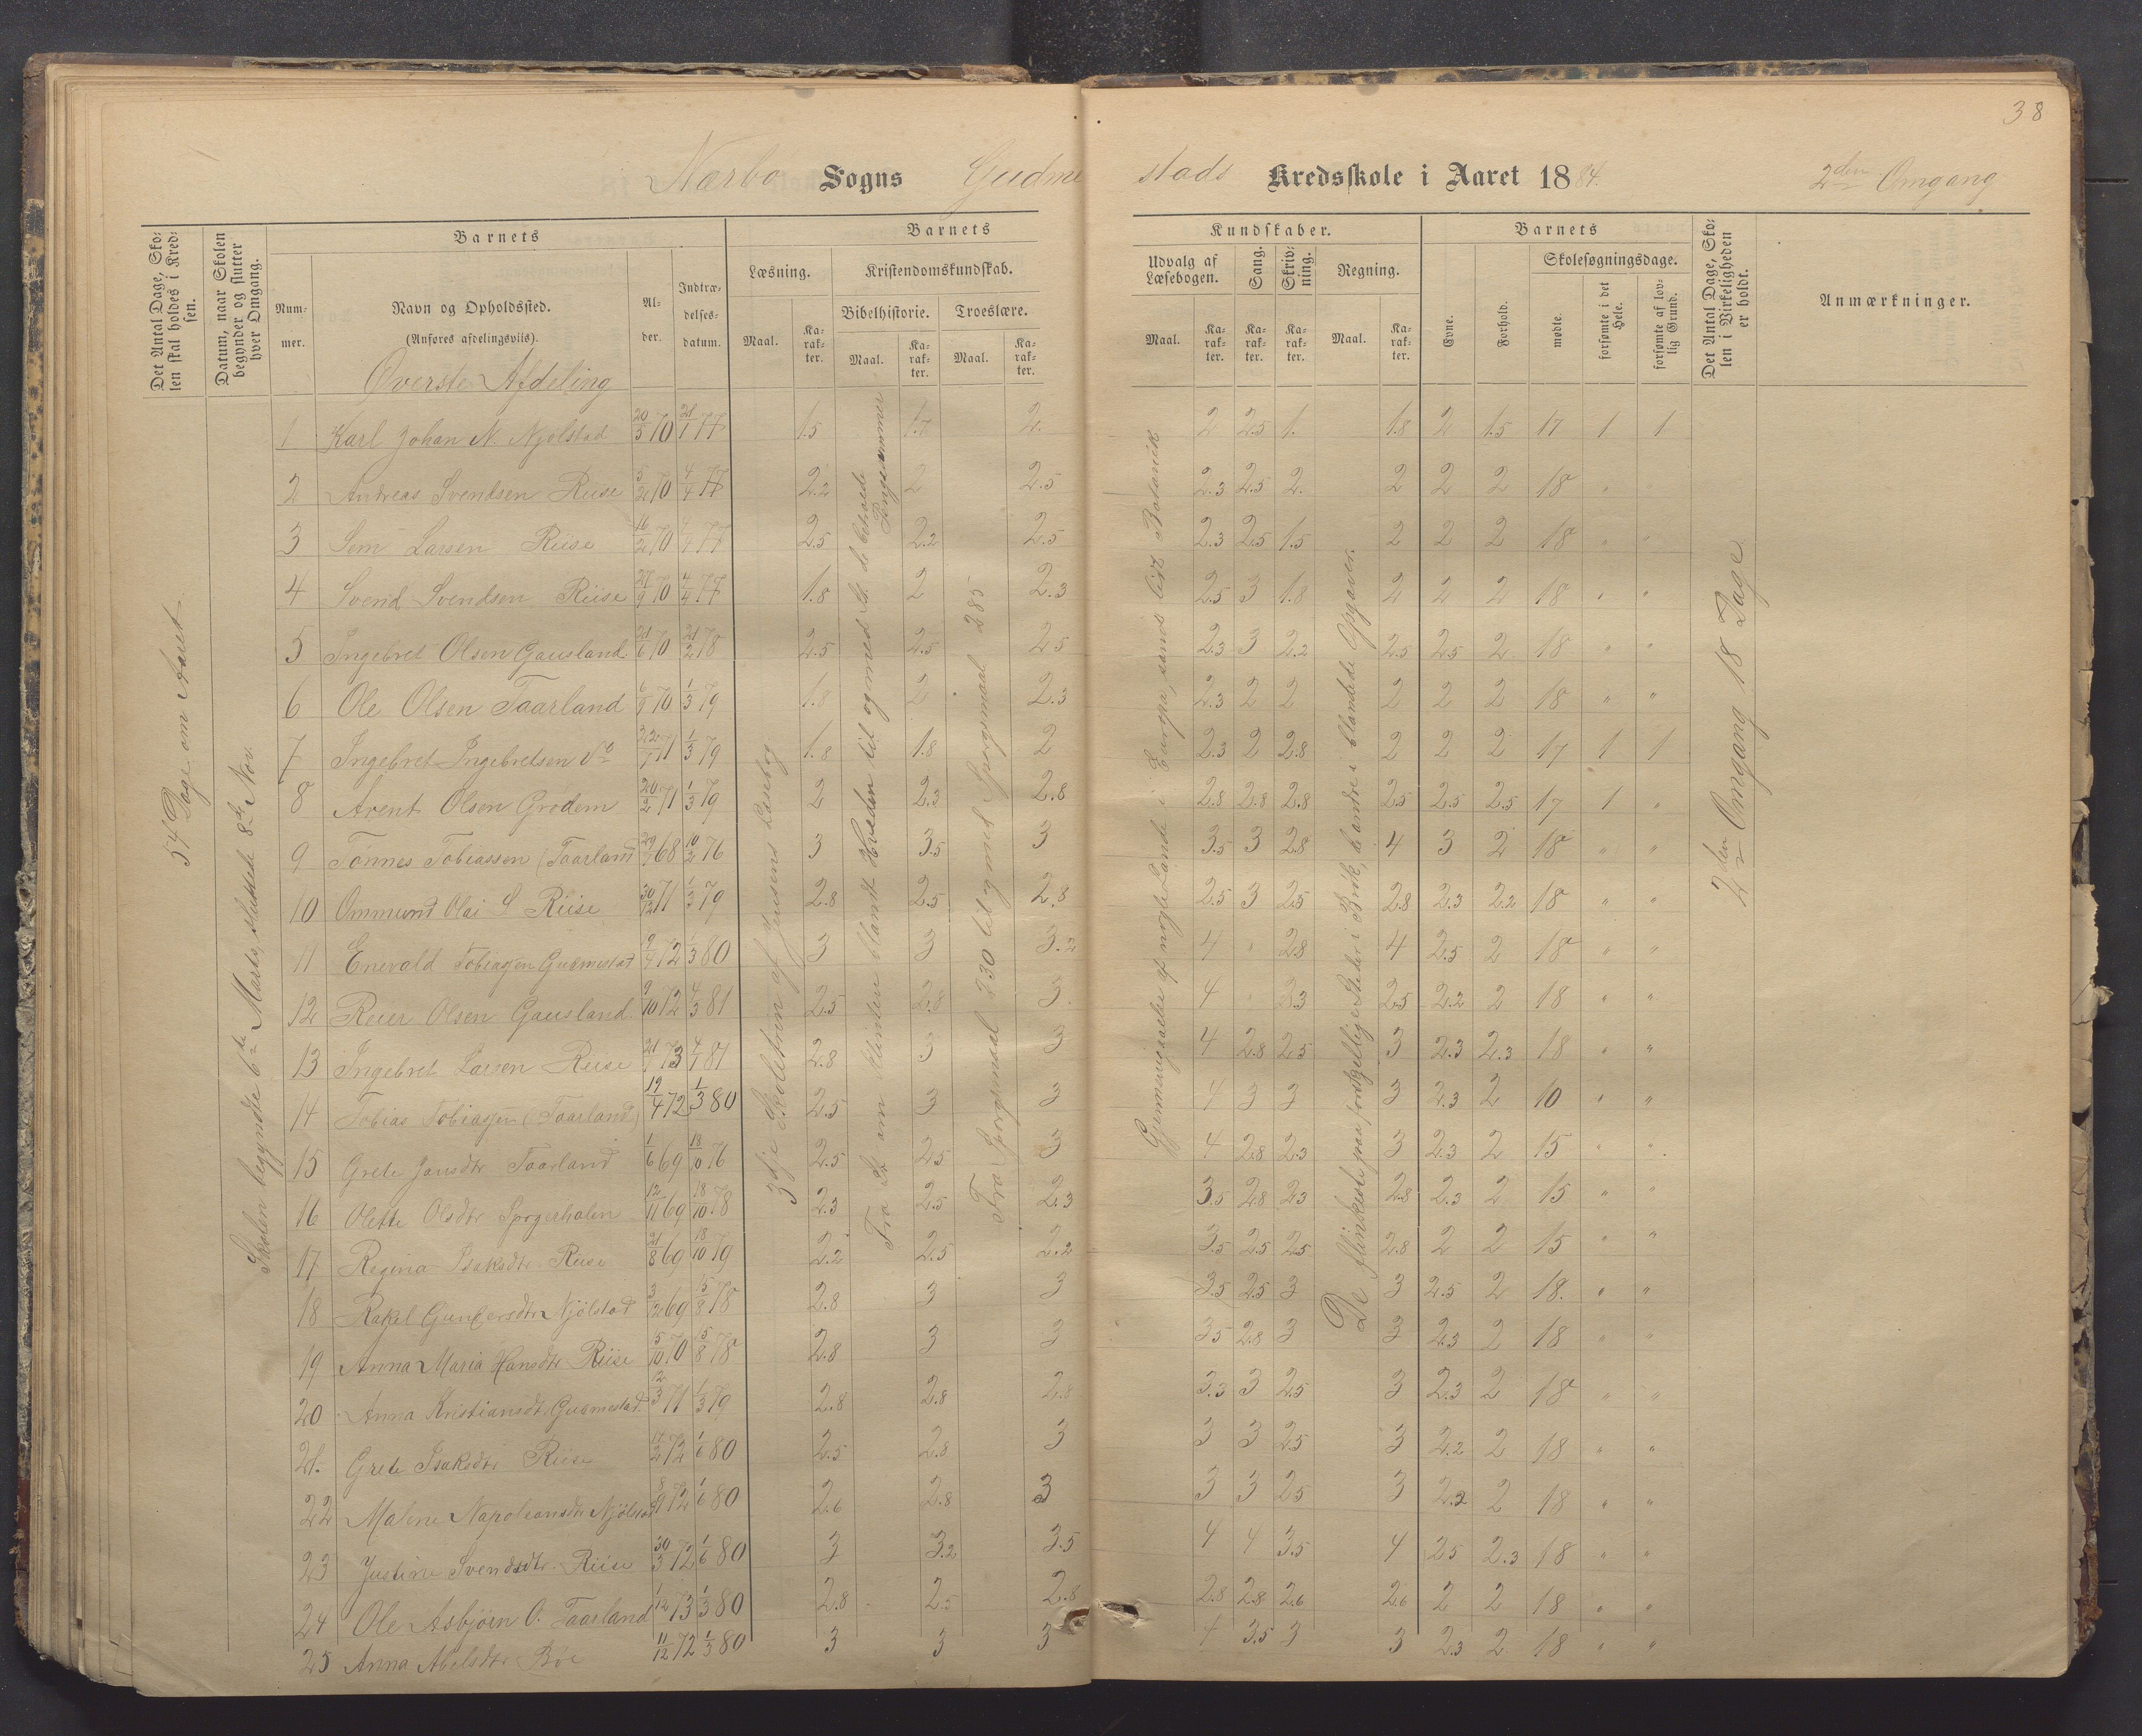 38
Nærbø Sogns Gudmestads Kredsskole i Aaret 1884. 2den Omgang
Det Antal Dage, Skolen skal holdes i Kredsen.
Datum, naar Skolen begynder og slutter hver Omgang.
Barnets
Nummer.
Navn og Opholdssted.
(Anføres afdelingsviis).
Alder.
Indtrædelsesdatum.
Barnets Kundskaber.
Læsning.
Maal. Karakter.
Kristendomskundskab.
Bibelhistorie. Troeslære.
Maal. Karakter. Maal. Karakter.
Udvalg af Læsebogen.
Maal. Karakter.
Sang. Karakter.
Skrivning. Karakter.
Regning.
Maal. Karakter.
Barnets
Evne. Forhold.
Skolesøgningsdage.
mødte. forsømte i det Hele. forsømte af lovlig Grund.
Det Antal Dage, Skolen i Virkeligheden er holdt.
Anmærkninger.
Øverste Afdeling
54 Dage om Aaret.
Skolen begyndte 6de Marts, sluttede 8de Nov.
3dje Skoletrin af Jensens Læsebog
Fra St. om Klinten blandt Hveden til og med St. de betroede Penge
Fra Spørgsmaal 230 til og med Spørgsmaal 285
Gjennemgaaelse af nogle Lande i Europa, samt lidt Botanik
De flinkeste paa forskjellige Steder i Brøk, de andre i blandede Opgaver.
2den Omgang 18 Dage
1 Karl Johan N. Njølstad 20/5 70 21/1 77 1.5 1.7 2. 2 2.5 1. 1.8 2 1.5 17 1 1
2 Andreas Svendsen Riise 70 4/4 77 2.2 2 2.5 2.3 2.5 2. 2 2 2 18 "
3 Sem Larsen Riise 70 4/4 77 2.5 2.2 2.5 2.3 2.5 1.5 2 2 2 18 " "
4 Svend Svendsen Riise 27/9 70 4/4 77 1.8 2 2.3 2.5 3 1.8 2 2 2 18 " "
5 Ingebret Olsen Gausland 21/6 70 21/2 78 2.5 2.5 2.5 2.3 3 2.2 2.5 2.5 2 18 " "
6 Ole Olsen Taarland 70 1/3 79 1.8 2 2.3 2.3 2 2 2 2 2 18 " "
7 Ingebret Ingebretsen do 71 1/3 79 1.8 1.8 2 2.3 2 2.8 2 2 2 17 1 1
8 Arent Olsen Grødem 20/2 71 1/3 79 2 2.3 2.8 2.8 2.8 2.8 2.5 2.5 2.5 17 1 "
9 Tønnes Tobiassen (Taarland) 68 10/2 76 3 3.5 3 3.5 3 2.8 4 3 2 18 " "
10 Ommund Olai S. Riise 30/12 71 1/3 79 2.8 2.5 2.8 2.5 3 2.5 2.8 2.3 2.2 18 " "
11 Enevald Tobiassen Gudmestad 72 1/3 80 3 3 3.2 4 " 2.8 4 2.5 2 18 " "
12 Reier Olsen Gausland 9/10 72 4/3 81 2.5 2.8 3. 4 " 3.3 2.5 2.2 2 18 " "
13 Ingebret Larsen Riise 73 4/1 81 2.8 3 3 4 2.8 2.5 3 2.3 2.3 18 " "
14 Tobias Tobiassen (Taarland) 19/4 72 1/3 80 2.5 3 3 4 3 3 3 2.3 2 10 " "
15 Grete Jansdtr Taarland 1/6 69 76 2.5 2.5 3 4 2.8 2.3 3 2.3 2 15 " "
16 Olette Olsdtr 12/11 69 18/10 78 2.3 2.5 2.3 3.5 2.8 2.3 2.8 2.3 2 15 " "
17 Regina Isaksdtr Riise 21/8 69 18/10 79 2.2 2.5 2.2 3.5 2.5 2.5 2.8 2 2 15 " "
18 Rakel Gundersdtr Njølstad 69 15/8 78 2.8 3 3 3.5 2.5 3 3 2.5 2 18. " "
19 Anna Maria Hansdtr Riise 5/10 70 15/8 78 2.8 3 3 3.5 2.8 3 3 2.3 2 18 " "
20 Anna Kristiansdt Gudmestad 12/3 71 1/3 79 2.8 2.8 2.8 3.3 3 2.5 3 2.3 2 18 " "
21. Grete Isaksdtr Riise 17/2 72 1/6 80 2.5 2.8 3 3 3 2.5 3 2.2 2 18 " "
22 Malene Napoleonsdtr Njølstad 8/9 72 1/6 80 2.6 2.8 3 3 3 2.5 3 2.2 2 18 " "
23 Justine Svendsdtr. Riise 30/3 72 1/6 80 3 3.2 3.5 4 4 3.5 4 2.5 2.3 18 " "
24 Ole Asbjørn O. Taarland 1/12 73 1/3 80 2.8 2.5 2.8 2.8 2.8 2.6 2.6 2 2 18 " "
25 Anna Abelsdtr Bøe 11/12 72 1/3 80 3 3 3 4 3.5 3 3 2.3 2 18 " "